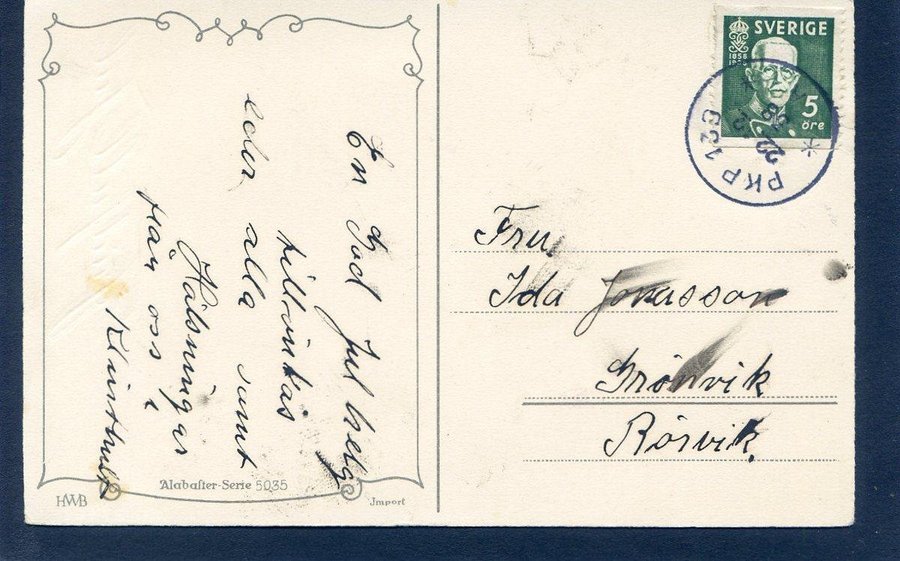 En God Jul helg
tillönskas
eder alla samt
Hälsningar
från oss i
Klinthult
Alabaster-Serie 5035
HWB
Import
SVERIGE
1858
5
öre
PKP 621
22 12
Fru
Ida Jonasson
Grönvik
Rörvik.